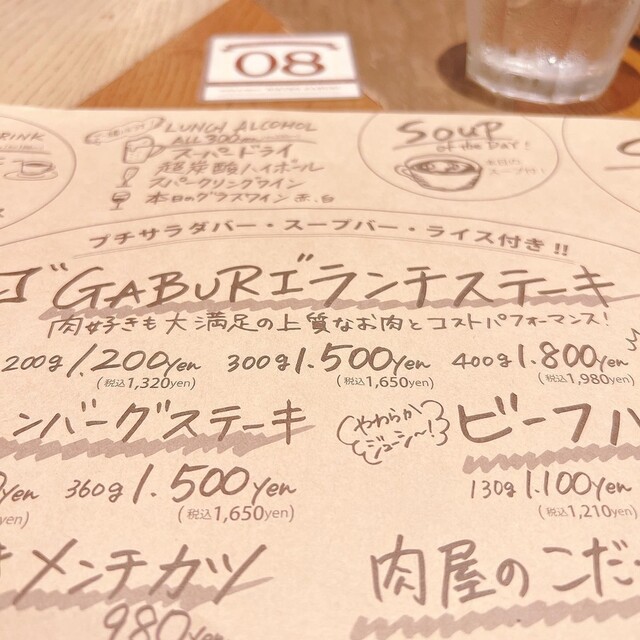 08
RINK
LUNCH ALCOHOL
ALL 300yen
スーパードライ
超炭酸ハイボール
スパークリングワイン
本日のグラスワイン 赤、白
Soup
of the DAY!
本日の
スープ付!
S
プチサラダバー・スープバー・ライス付き!!
"GABURI"ランチステーキ
肉好きも大満足の上質なお肉とコストパフォーマンス!
200g 1.200yen 300g 1.500yen 400g 1.800yen
(税込1,320yen) (税込1,650yen) (税込1,980yen)
ンバーグステーキ
やわらか
ジューシー!
ビーフハ
yen 360g 1.500yen 130g 1.100yen
yen) (税込1,650yen) (税込1,210yen)
メンチカツ
肉屋のこだ
980yen